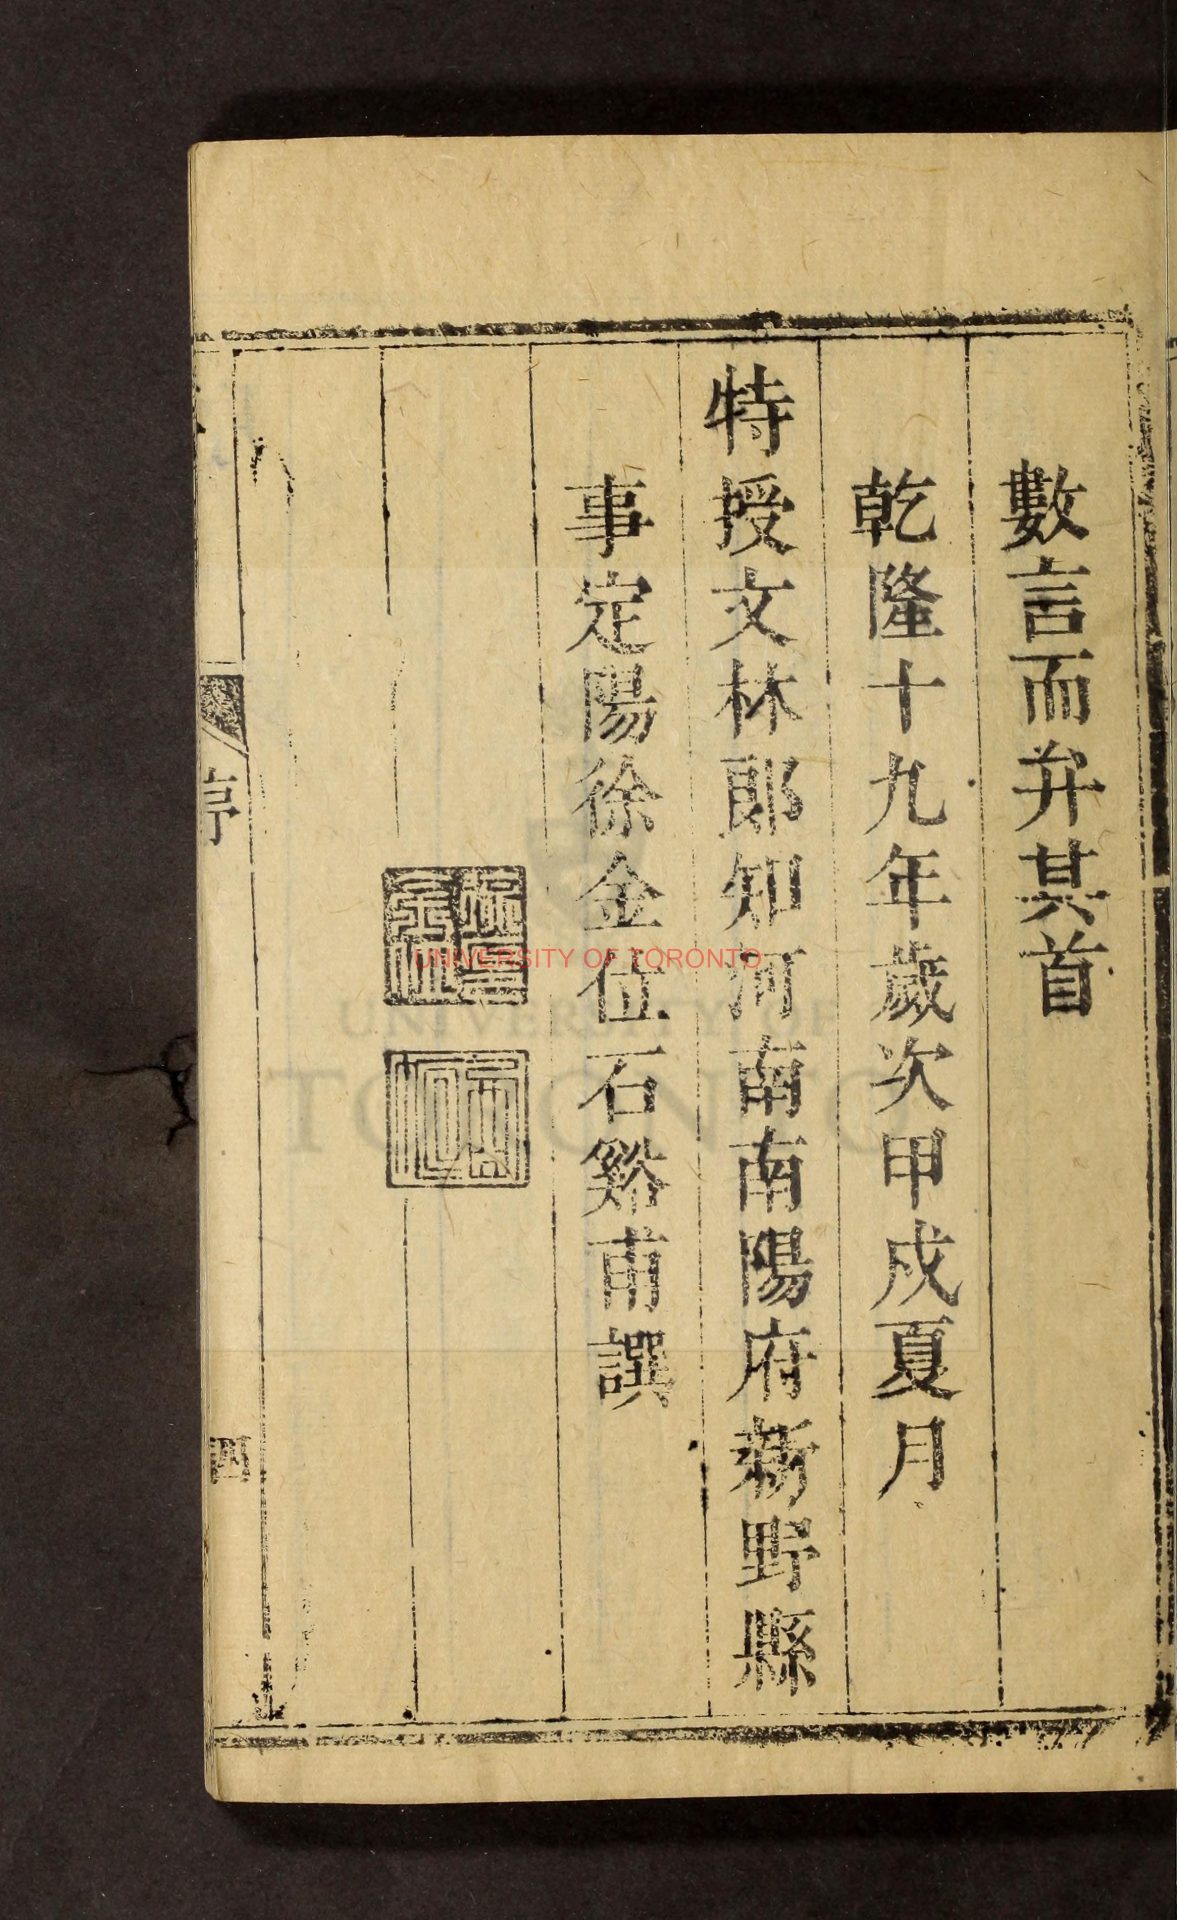 數言而弁其首
乾隆十九年歲次甲戌夏月
特授文林郎知河南南陽府新野縣
事定陽徐金位石谿甫譔
序
四
UNIVERSITY OF TORONTO
UNIVERSITY OF
TORONTO